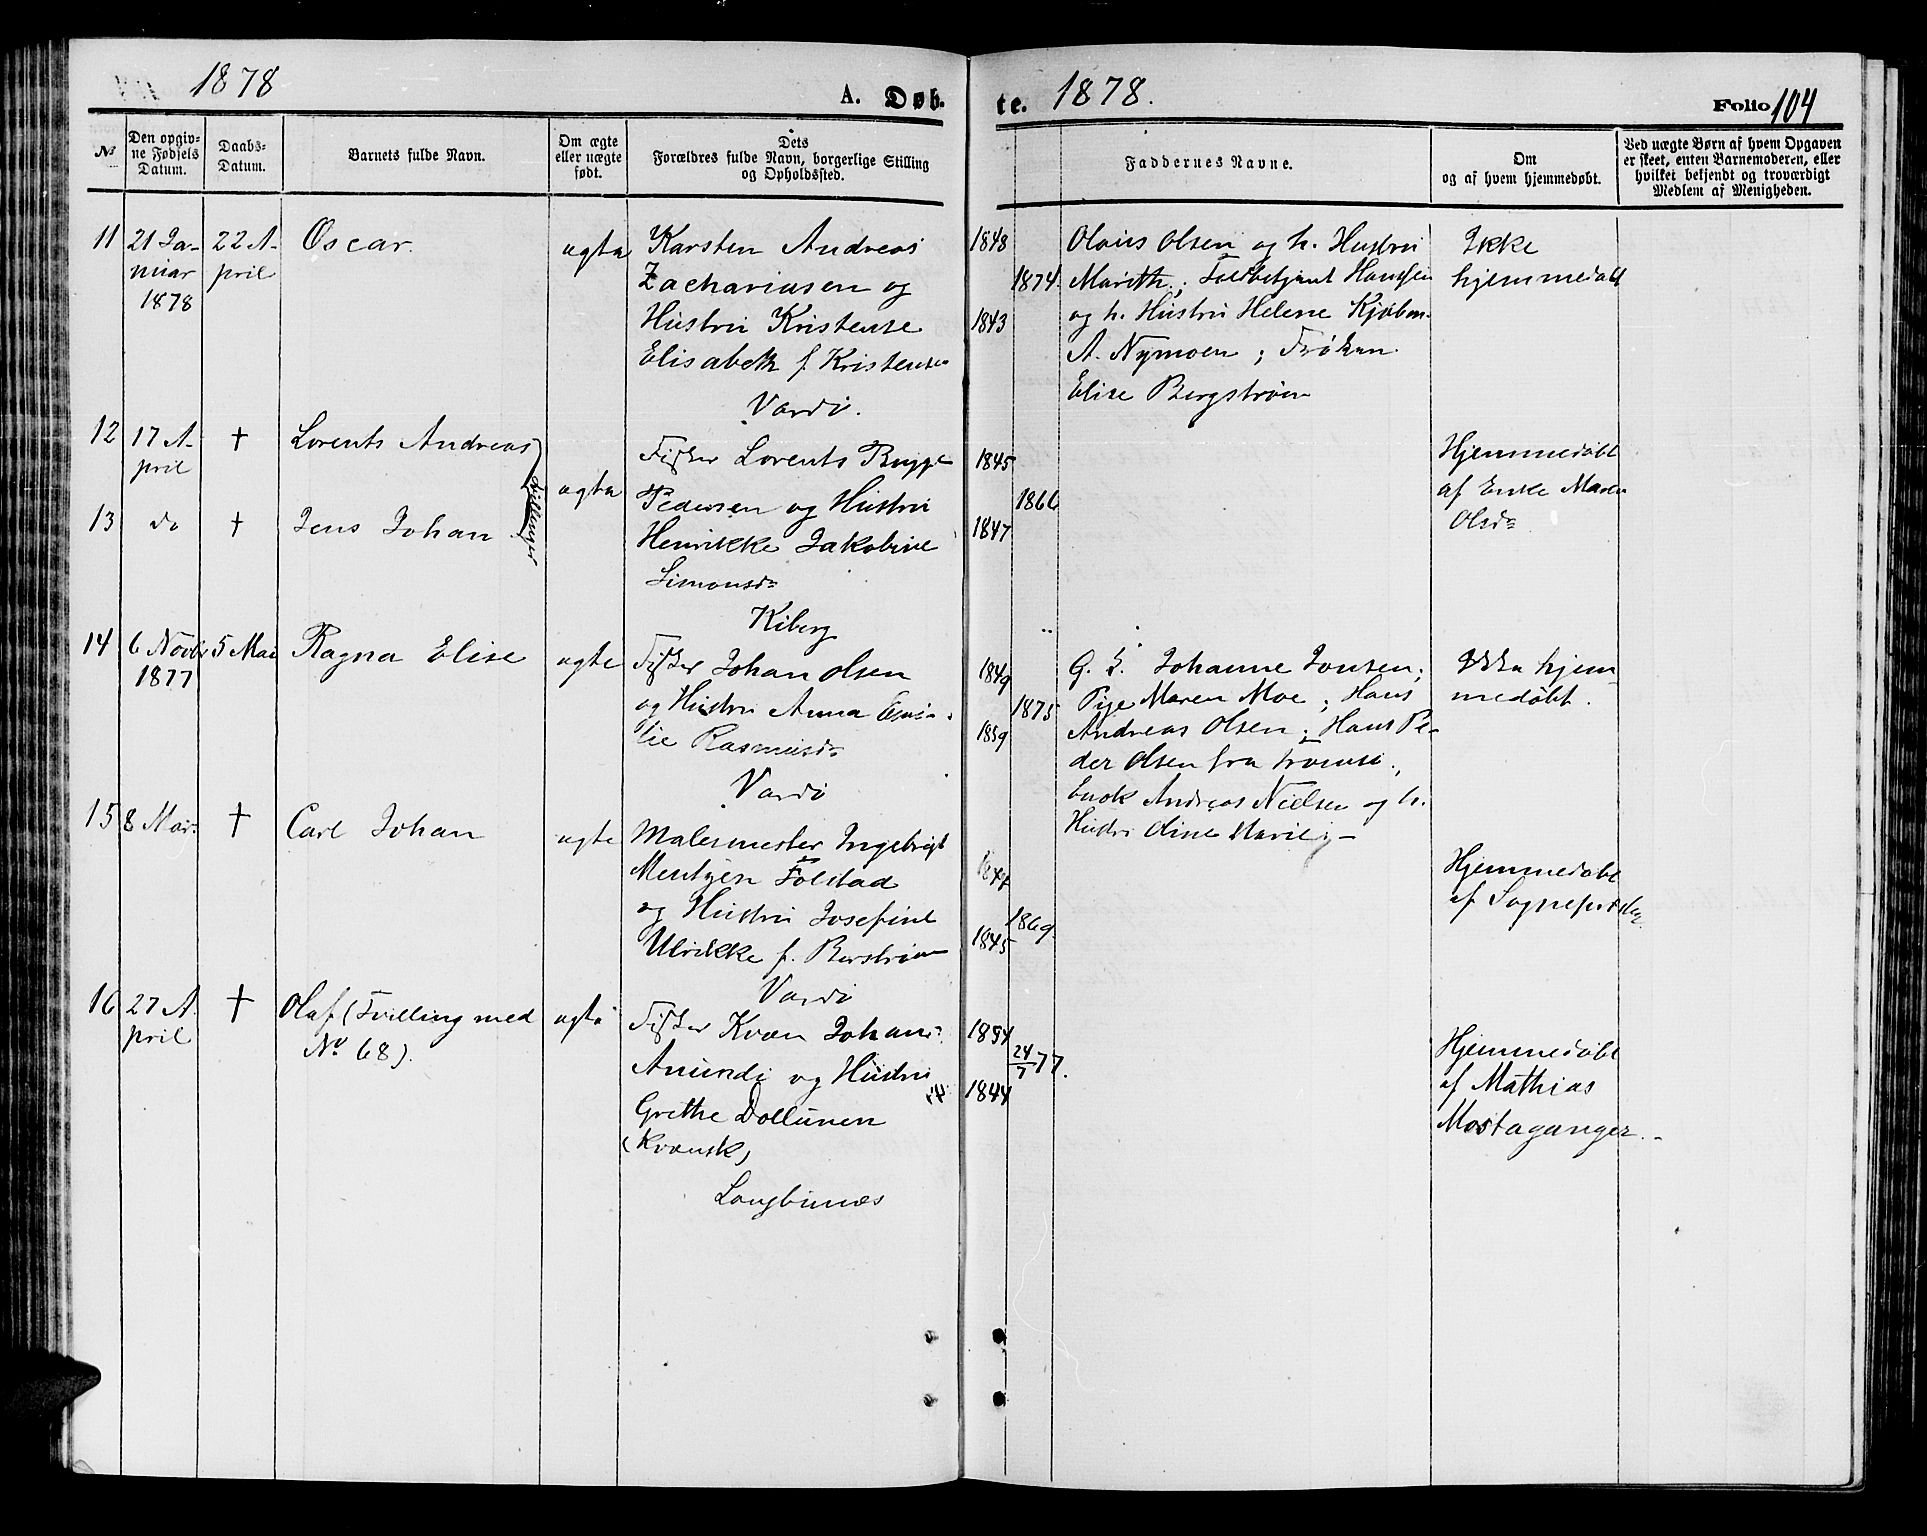 1878
A. Døb.
№
Den opgivne Fødsels Datum.
Daabs-Datum.
Barnets fulde Navn.
Om ægte eller uægte født.
Dets Forældres fulde Navn, borgerlige Stilling og Opholdssted.
11
21 Ja-
nuar
1878
22 A-
pril
Oscar
ægte
Karsten Andreas
Zachariasen og
Hustru Kristense
Elisabeth f. Kristensen
Vardö.
12
17 A-
pril
†
Lorents Andreas
Tvillinger
ægte
Fisker Lorents Bugge
Pedersen og Hustru
Henrikke Jakobine
Simonsdr
Kiberg
13
do
†
Jens Johan
14
6 Novbr
1877
5 Mai
Ragna Elise
ægte
Fisker Johan Olsen
og Hustru Anna Emi-
lie Rasmusdr
Vardö
15
8 Mai
†
Carl Johan
ægte
Malermester Ingebrigt
Mentzen Folstad
og Hustru Josefine
Ulrikke f. Berström
Vardö
16
27 A
pril
†
Olaf (Tvilling med
No 68).
ægte
Fisker Kvæn Johan
Amundi og Hustru
Grethe Dollunen
(Kvænsk)
Langbunæs
te.
1878.
Folio 104
Faddernes Navne.
Om og af hvem hjemmedøbt.
Ved uægte Børn af hvem Opgaven
er skeet, enten Barnemoderen, eller
hvilket bekjendt og troværdigt
Medlem af Menigheden.
1848
1874.
1843
Olaus Olsen og h. Hustru
Marith; Toldbetjent Hansen
og h. Hustru Helene Kjøbm.
A. Nymoen; Frøken
Elise Bergström
Ikke
hjemmedøbt
1845
1866
1847
Hjemmedøbt
af Enke Maren
Olsdr
1849
1875
1859
G. K. Johanne Jonsen;
Pige Maren Moe; Hans
Andreas Olsen; Hans Pe-
der Olsen fra Tromsö;
Enok Andreas Nielsen og h.
Hustru Oline Marie;
Ikke hjem-
medøbt.
1869.
1845
Hjemmedøbt
af Sognepresten
1834
24/7 77.
1844
Hjemmedøbt
af Mathias
Mostaganger.